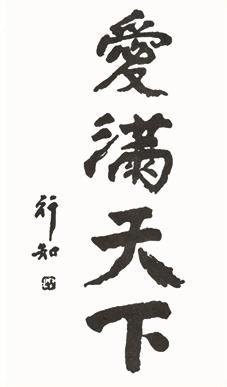 愛滿天下
行知